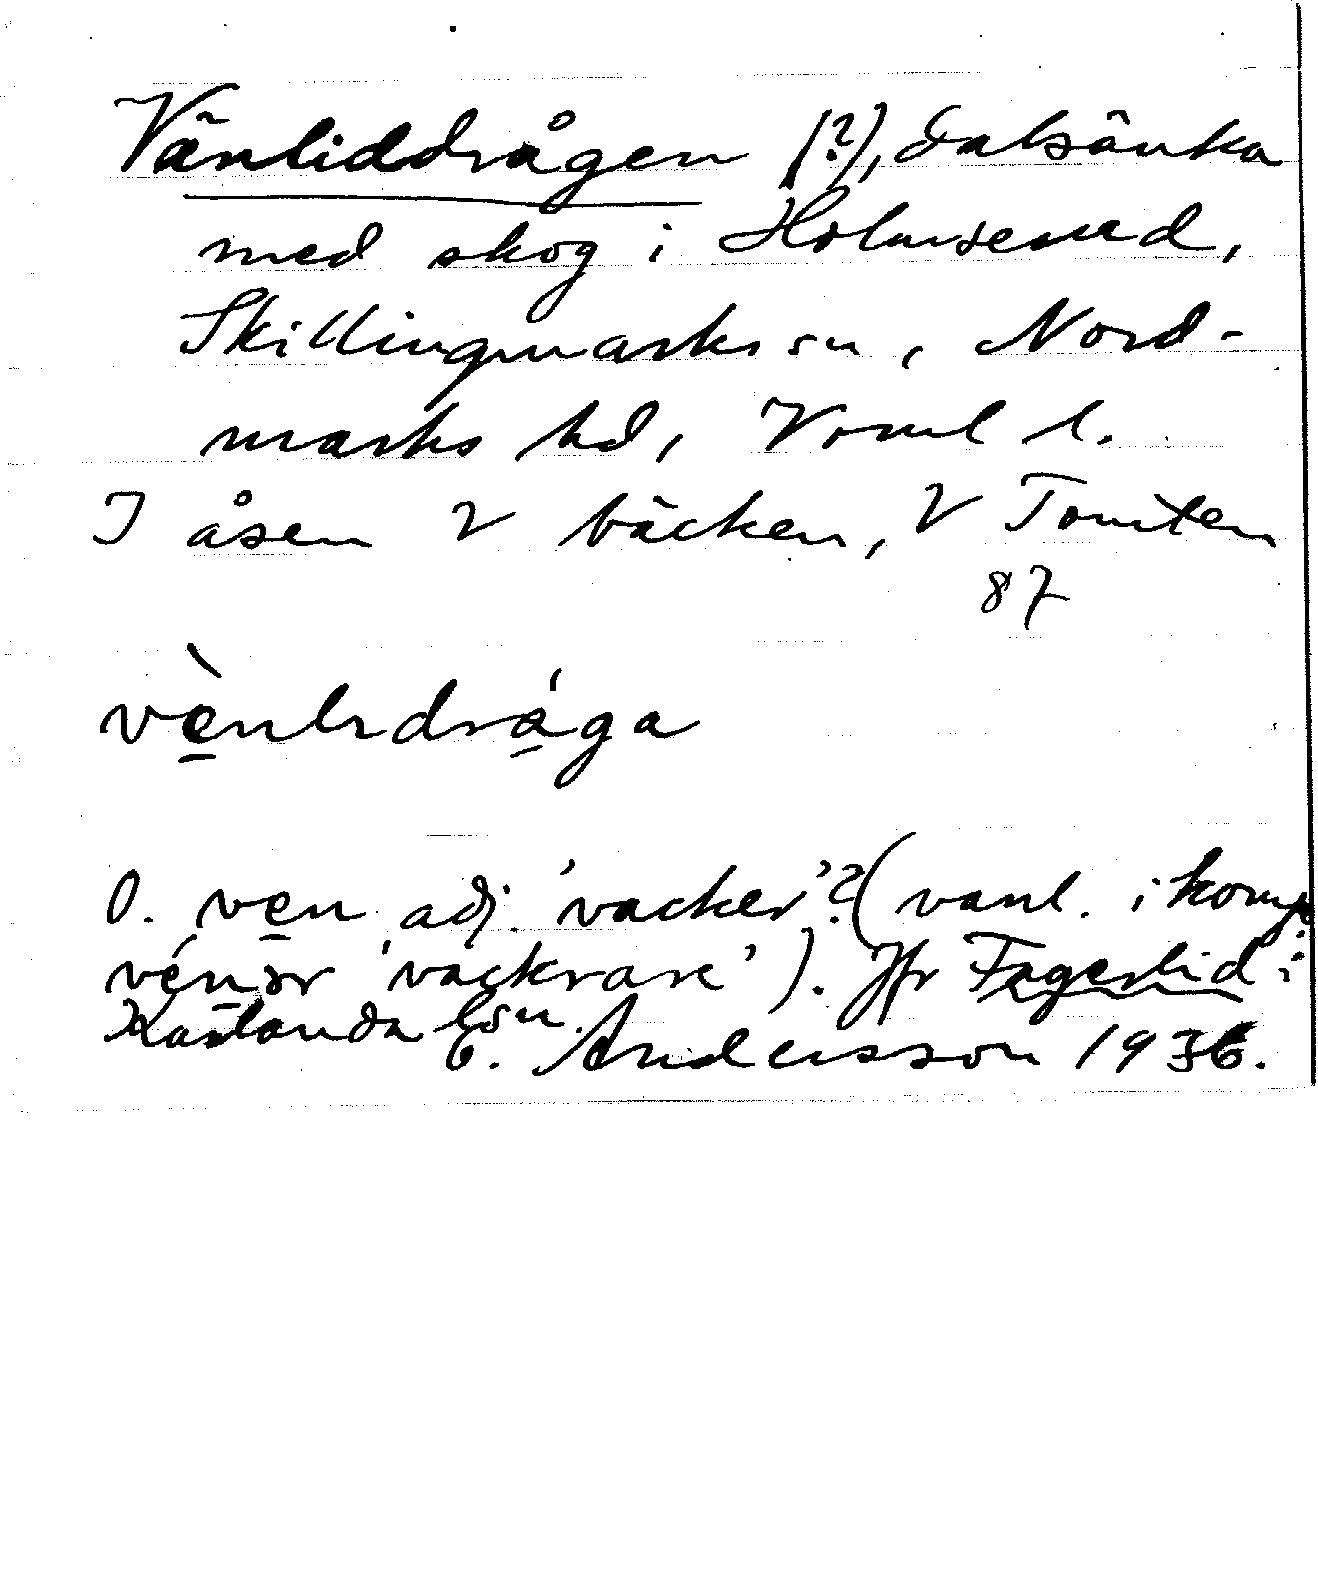 Vänliddrågen (?), dalsänka
med skog i Holmserud,
Skillingmarks sn, Nord-
marks hd, Vrml l.
I åsen V bäcken, V Tomten
87
vènlıdrága
O. ven adj. 'vacker'? (vanl. i komp.
vénər 'vackrare'). Jfr Fagerlid i
Karlanda sn. E. Andersson 1936.